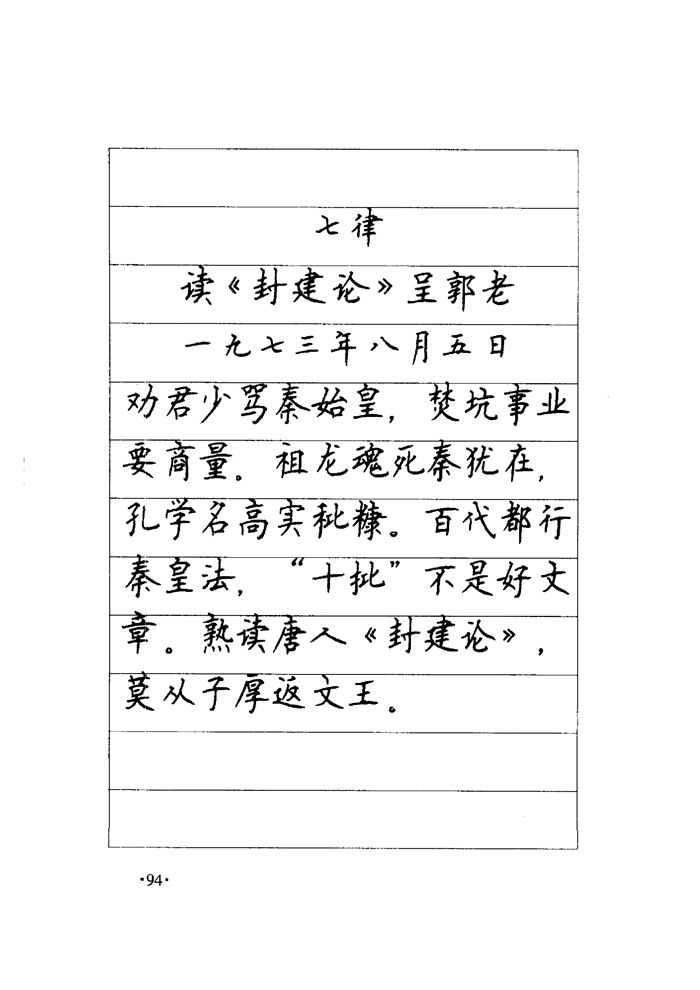 七律
读《封建论》呈郭老
一九七三年八月五日
劝君少骂秦始皇，焚坑事业
要商量。祖龙魂死秦犹在，
孔学名高实秕糠。百代都行
秦皇法，“十批”不是好文
章。熟读唐人《封建论》，
莫从子厚返文王。
·94·